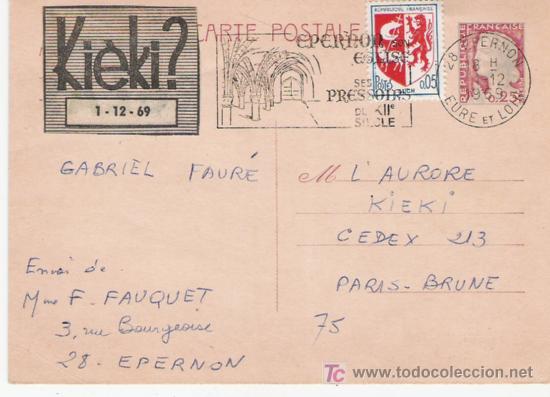 CARTE POSTALE
Kiéki?
1-12-69
EPERNON SON
EGLISE
SES
PRESSOIRS
DU XIIe
SIECLE
REPUBLIQUE FRANÇAISE
Postes
AUCH
0,05
REPUBLIQUE FRANÇAISE
0,25
28 EPERNON
H
12
1969
EURE ET LOIR
GABRIEL FAURÉ
M L'AURORE
KIEKI
CEDEX 213
PARIS-BRUNE
75
Envoi de
Mme F. FAUQUET
3, rue Bourgeoise
28 - EPERNON
TC todocoleccion.net